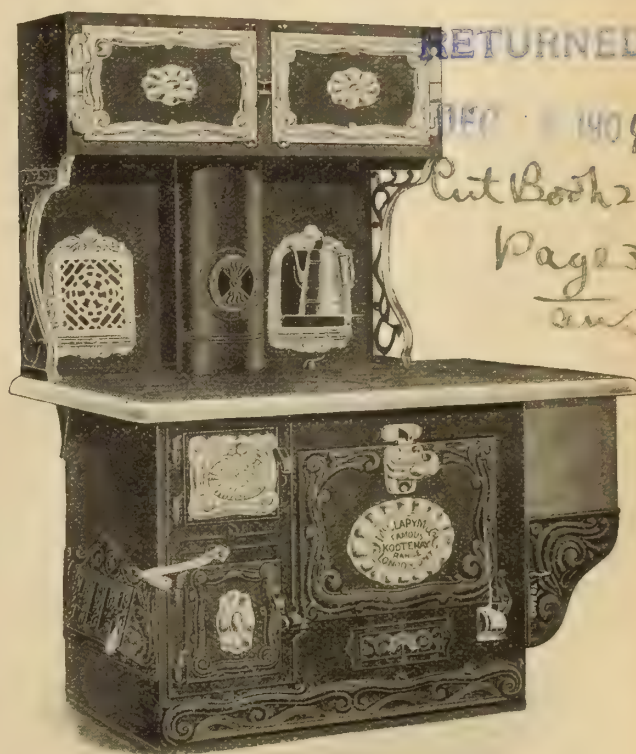 RETURNED
DEC 190
Cut Book 2
Page 3
McCLARY MFG
FAMOUS
KOOTENAY
RANGE
LONDON